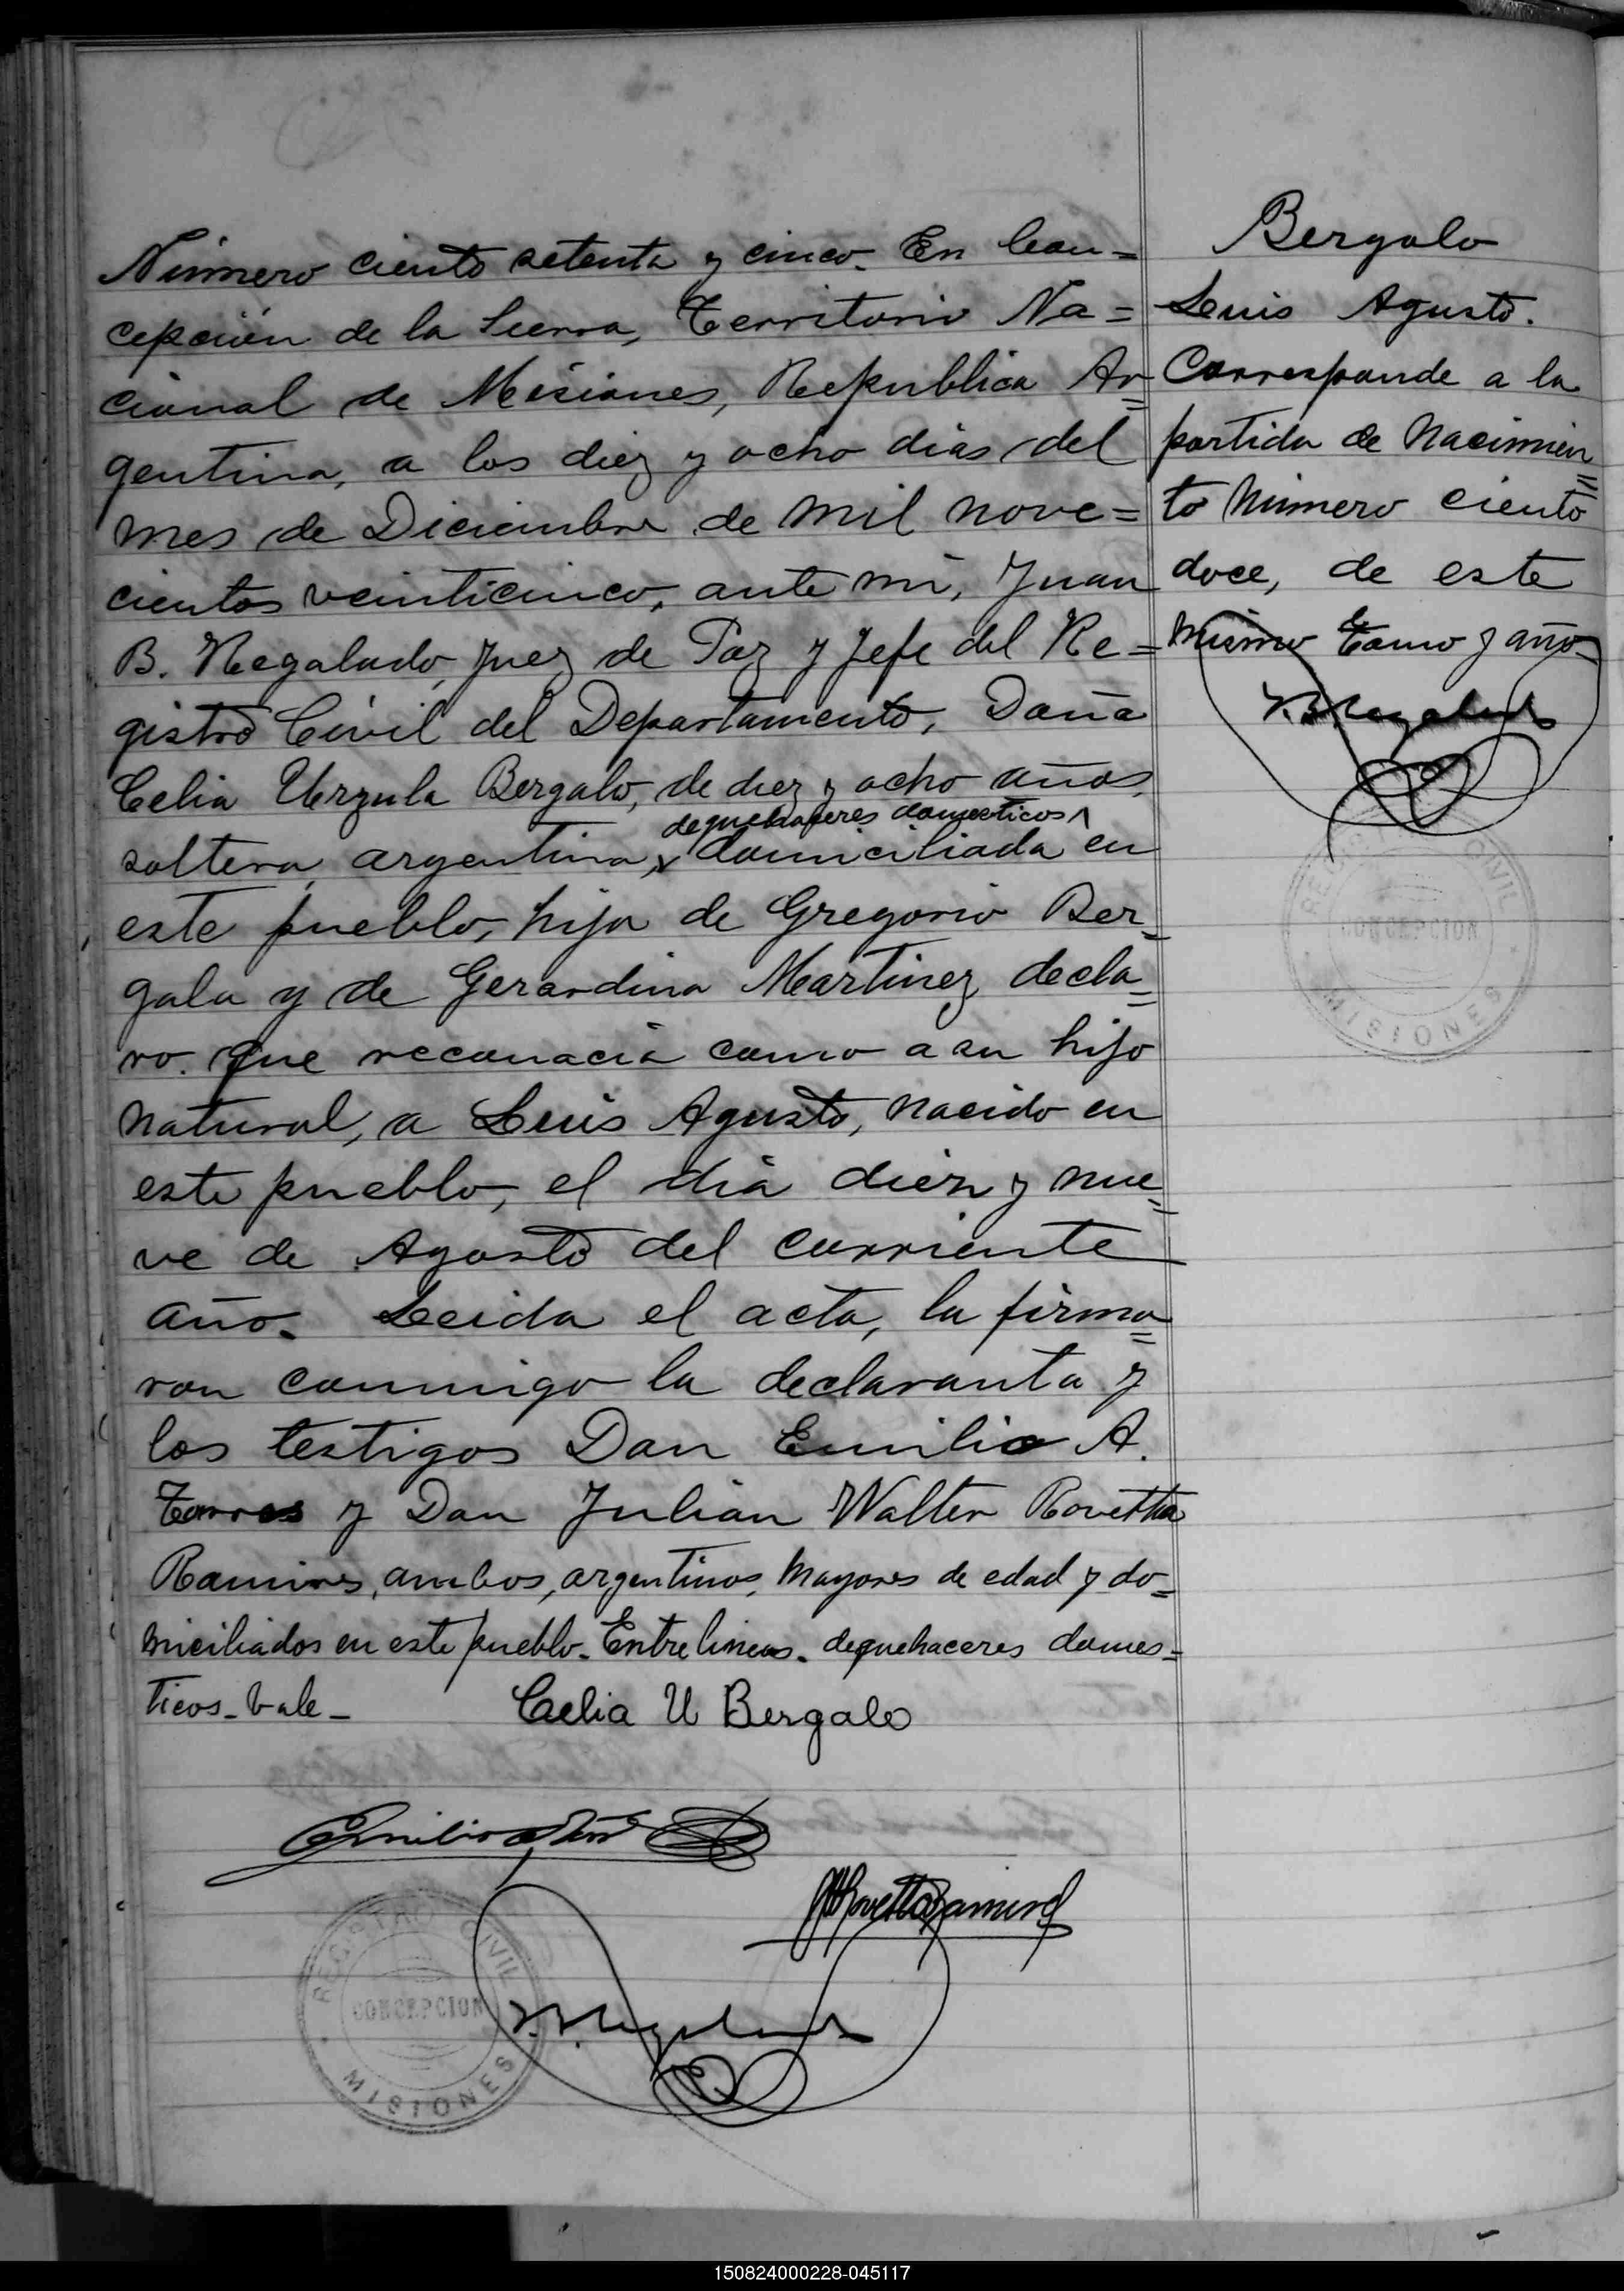 Número ciento setenta y cinco. En Con=
cepción de la Sierra, Territorio Na=
cional de Misiones, Republica Ar=
gentina, a los diez y ocho dias del
mes de Diciembre de mil nove=
cientos veinticinco, ante mi, Juan
B. Regalado, Juez de Paz y Jefe del Re=
gistro Civil del Departamento, Doña
Celia Urzula Bergalo, de diez y ocho años,
dequehaceres domesticos
soltera, argentina, domiciliada en
este pueblo, hija de Gregorio Ber=
galo y de Gerardina Martinez, decla=
ro. Que reconocia como a su hijo
natural, a Luis Agusto, nacido en
este pueblo, el dia diez y nue=
ve de Agosto del corriente
año. Leida el acta, la firma=
ron conmigo la declaranta y
los testigos Don Emilio A.
Torres y Don Julian Walter Rovetta
Ramires, ambos, argentinos, mayores de edad y do=
miciliados en este pueblo. Entre lineas. dequehaceres domes=
ticos. Vale_
Celia U Bergalo
REGISTRO CIVIL
CONCEPCION
MISIONES
Bergalo
Luis Agusto.
Corresponde a la
partida de nacimien=
to número ciento
doce, de este
mismo tomo y año
REGISTRO CIVIL
CONCEPCION
MISIONES
150824000228-045117